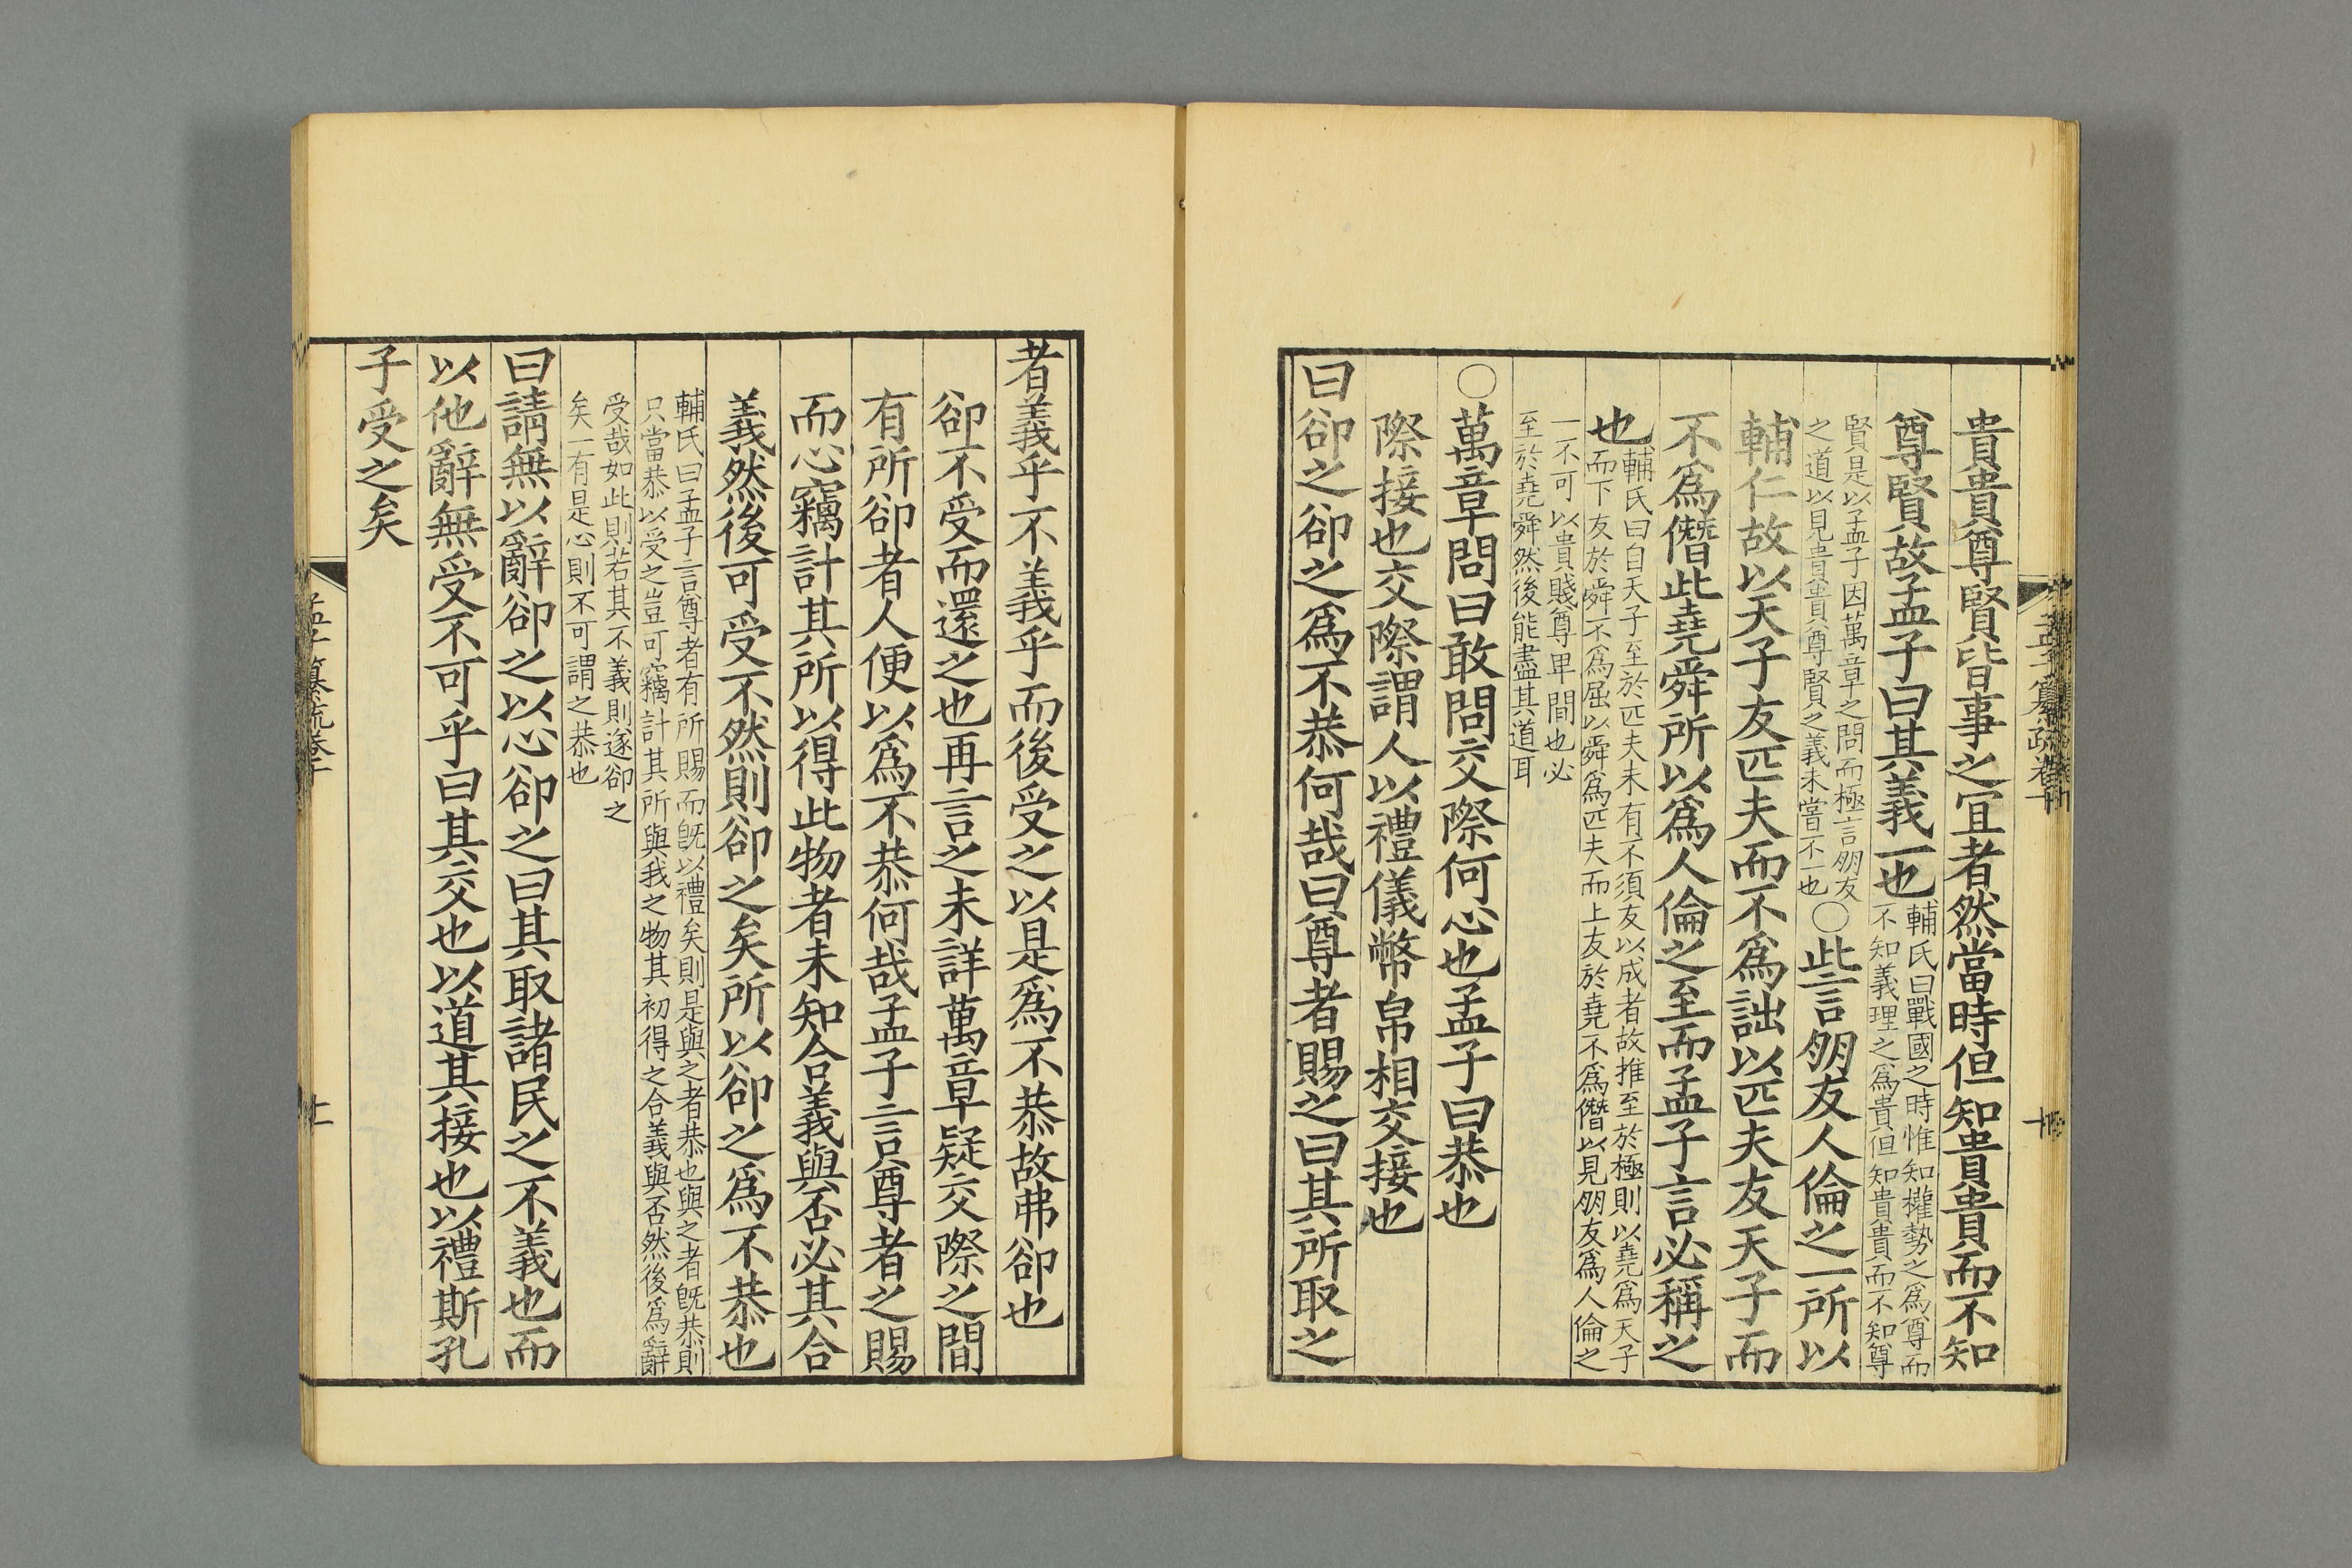 貴貴尊賢皆事之宜者然當時但知貴貴而不知
尊賢故孟子曰其義一也
輔氏曰戰國之時惟知權勢之爲尊而
不知義理之爲貴但知貴貴而不知尊
賢是以孟子因萬章之問而極言朋友
之道以見貴貴尊賢之義未嘗不一也
○此言朋友人倫之一所以
輔仁故以天子友匹夫而不爲詘以匹夫友天子而
不爲僭此堯舜所以爲人倫之至而孟子言必稱之
也
輔氏曰自天子至於匹夫未有不須友以成者故推至於極則以堯爲天子
而下友於舜不爲屈以舜爲匹夫而上友於堯不爲僭以見朋友爲人倫之
一不可以貴賤尊卑間也必
至於堯舜然後能盡其道耳
○萬章問曰敢問交際何心也孟子曰恭也
際接也交際謂人以禮儀幣帛相交接也
曰卻之卻之爲不恭何哉曰尊者賜之曰其所取之
孟子纂疏卷十
十
者義乎不義乎而後受之以是爲不恭故弗卻也
卻不受而還之也再言之未詳萬章疑交際之間
有所卻者人便以爲不恭何哉孟子言尊者之賜
而心竊計其所以得此物者未知合義與否必其合
義然後可受不然則卻之矣所以卻之爲不恭也
輔氏曰孟子言尊者有所賜而旣以禮矣則是與之者恭也與之者旣恭則
只當恭以受之豈可竊計其所與我之物其初得之合義與否然後爲辭
受哉如此則若其不義則遂卻之
矣一有是心則不可謂之恭也
曰請無以辭卻之以心卻之曰其取諸民之不義也而
以他辭無受不可乎曰其交也以道其接也以禮斯孔
子受之矣
孟子纂疏卷十